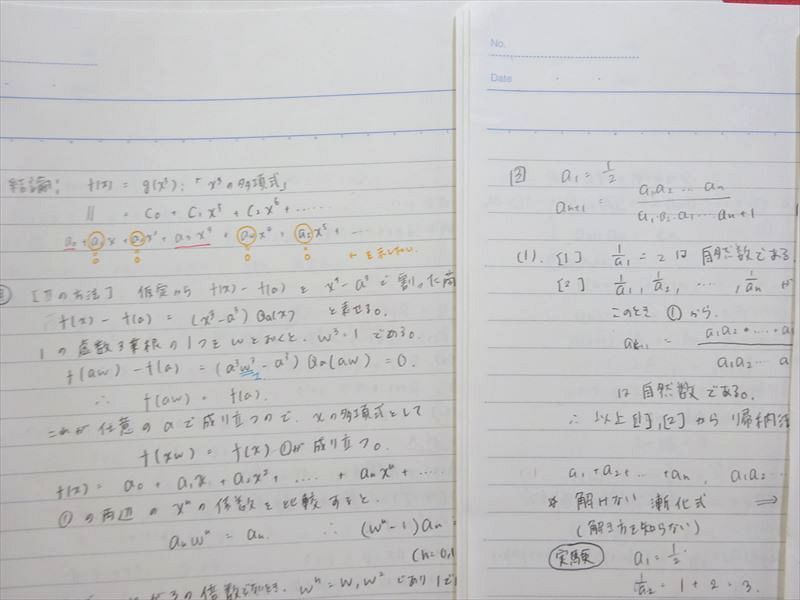 結論: f(x) = g(x³): 「x³の多項式」
|| = C₀ + C₁x³ + C₂x⁶ + ......
a₀ + a₁x + a₂x² + a₃x³ + a₄x⁴ + a₅x⁵ + ...
0 0 0 0 ← を示したい。
[IIの方法] 仮定から f(x) - f(a) を x³-a³ で割った商
f(x) - f(a) = (x³-a³) Qa(x) と表せる。
1の虚数3乗根の1つをωとおくと、ω³=1である。
f(aω) - f(a) = (a³ω³ - a³) Qa(aω) = 0.
∴ f(aω) = f(a).
これが任意のaで成り立つので、xの多項式として
f(xω) = f(x) ①が成り立つ。
f(x) = a₀ + a₁x + a₂x² + .... + aₙxⁿ + ......
①の両辺のxⁿの係数を比較すると、
aₙωⁿ = aₙ. ∴ (ωⁿ-1)aₙ =
(n=0,1
の倍数でないとき、ωⁿ = ω, ω² であり1で
No.
Date
③ a₁ = 1/2
aₙ₊₁ = a₁a₂...aₙ / a₁a₂a₃...aₙ+1
(1). [1] 1/a₁ = 2 は自然数である
[2] 1/a₁, 1/a₂, ..., 1/aₙ が
このとき ①から.
は自然数である。
∴ 以上[1],[2]から帰納法
a₁+a₂+...+aₙ, a₁a₂...
* 解けない漸化式 ⇒
(解き方を知らない)
実験 a₁ = 1/2.
1/a₂ = 1 + 2 = 3.